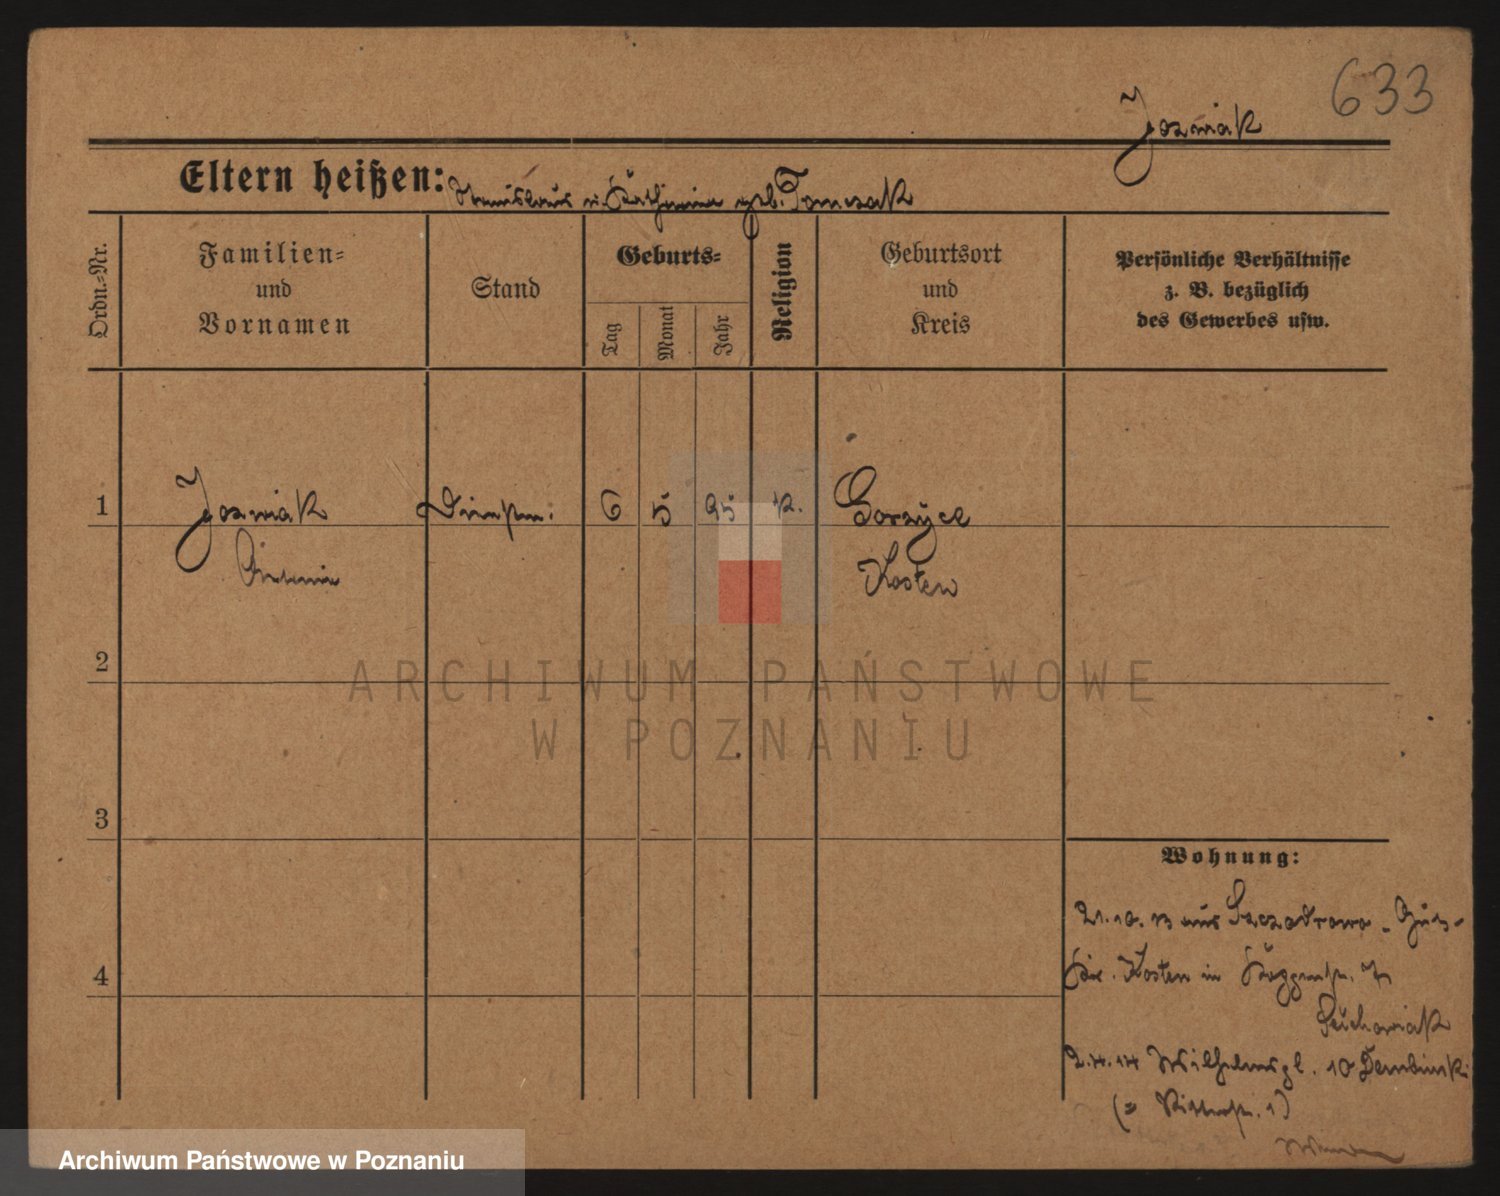 633
Jozwiak
Eltern heißen: Stanislaus u. Kathrina geb. Tomczak
Ordn.-Nr.
Familien-
und
Vornamen
Stand
Geburts-
Tag
Monat
Jahr
Religion
Geburtsort
und
Kreis
Persönliche Verhältnisse
z. B. bezüglich
des Gewerbes usw.
1 Jozwiak 6 5 95 k. Gorzyce
Kosten
2
3
4
Wohnung:
21.10.13 aus
Kr. Kosten in
2.4.14 Wilhelmspl. 10 Dembinski
(= Ritterstr. 1)
ARCHIWUM PAŃSTWOWE
W POZNANIU
Archiwum Państwowe w Poznaniu